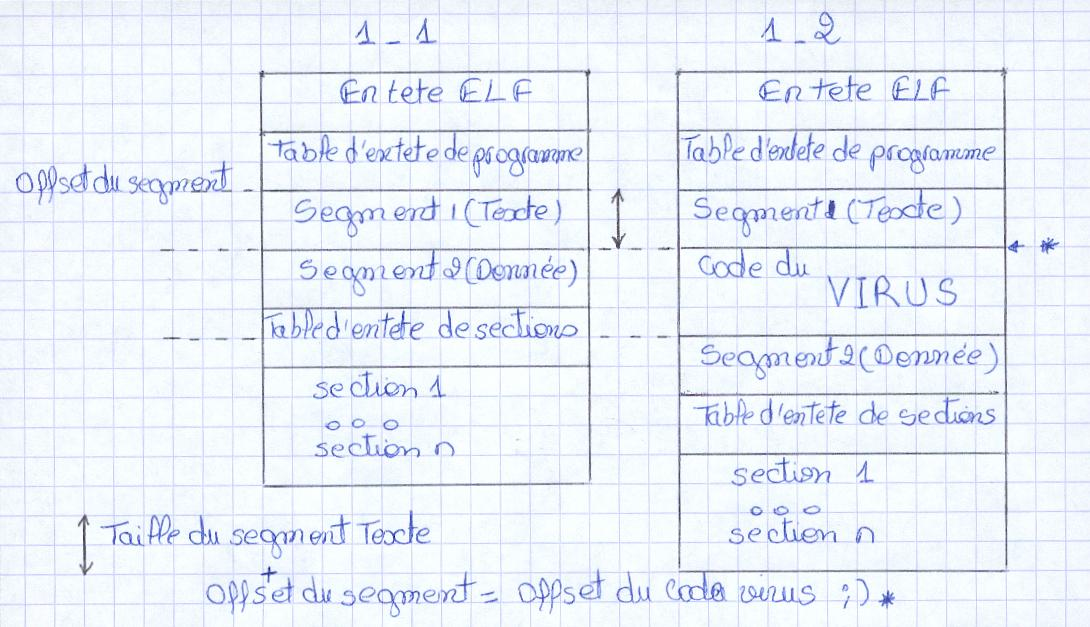 1_1
En tete ELF
Table d'entete de programme
Offset du segment
Segment 1 (Texte)
Segment 2 (Donnée)
Table d'entete de sections
section 1
o o o
section n
1_2
En tete ELF
Table d'entete de programme
Segment 1 (Texte)
*
Code du
VIRUS
Segment 2 (Donnée)
Table d'entete de sections
section 1
o o o
section n
Taille du segment Texte
+
Offset du segment = Offset du code virus ;) *